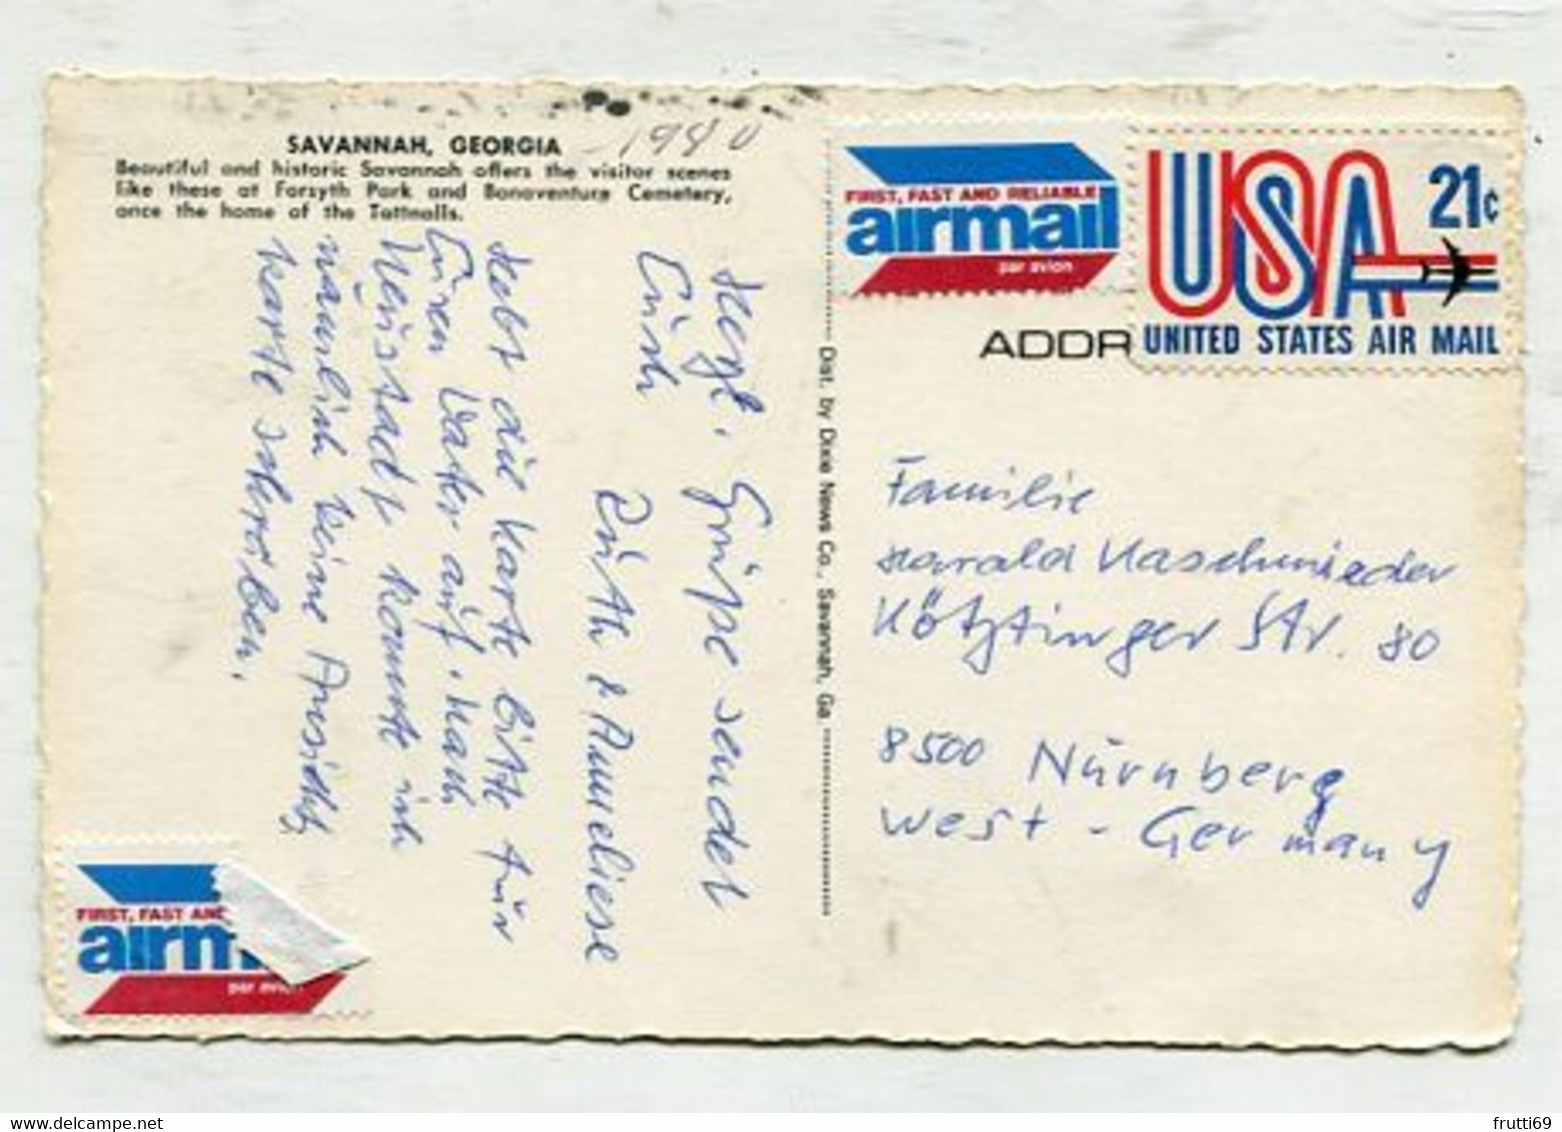 SAVANNAH, GEORGIA
Beautiful and historic Savannah offers the visitor scenes
like these at Forsyth Park and Bonaventure Cemetery,
once the home of the Tattnalls.
1980
Herzl. Grüße sendet
Euch
Ruth & Anneliese
Hebt die Karte bitte für
Euren Vater auf. Nach
Neustadt konnte ich
nämlich keine Ansichts
karte schreiben.
Dist. by Dixie News Co., Savannah, Ga.
FIRST, FAST AND RELIABLE
airmail
par avion
USA 21c
UNITED STATES AIR MAIL
ADDR
Familie
Harald Kaschmieder
Kötztinger Str. 80
8500 Nürnberg
West-Germany
FIRST, FAST AND
airm
par avion
frutti69